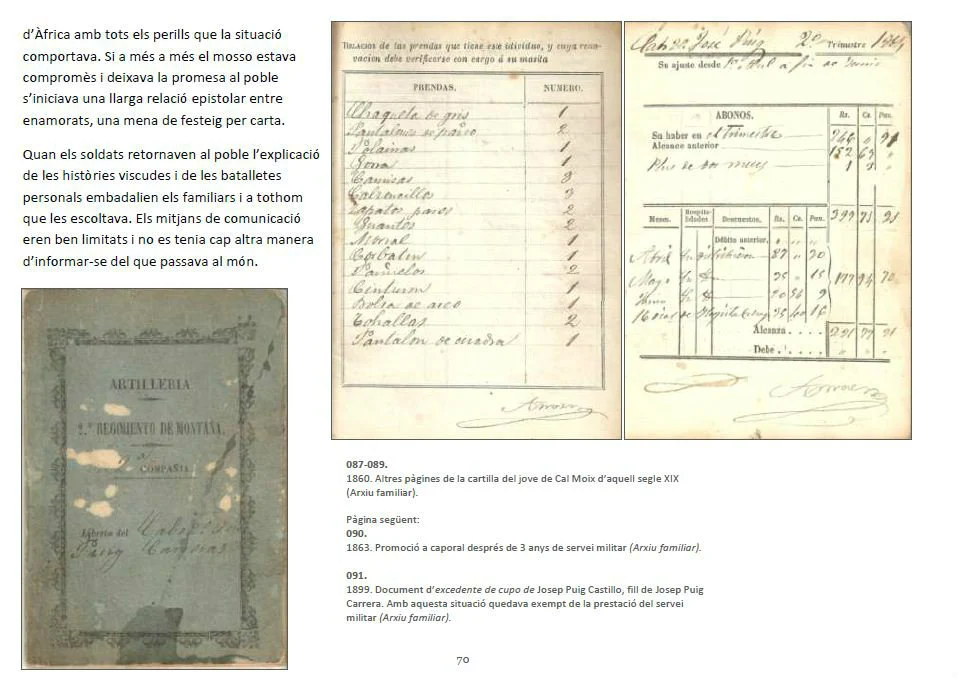 d’Àfrica amb tots els perills que la situació
comportava. Si a més a més el mosso estava
compromès i deixava la promesa al poble
s’iniciava una llarga relació epistolar entre
enamorats, una mena de festeig per carta.
Quan els soldats retornaven al poble l’explicació
de les històries viscudes i de les batalletes
personals embadalien els familiars i a tothom
que les escoltava. Els mitjans de comunicació
eren ben limitats i no es tenia cap altra manera
d’informar-se del que passava al món.
ARTILLERIA
2.º REGIMIENTO DE MONTAÑA.
COMPAÑIA
Libreta del
Puig Carreras
Relacion de las prendas que tiene este idividuo, y cuya reno-
vacion debe verificarse con cargo á su masita
PRENDAS. NUMERO.
Chaqueta de gris 1
Pantalones de paño 2
Polainas 1
1
Camisas 3
Calzoncillos 3
Zapatos pares 2
Guantes 2
Morral 1
Corbatin 1
Pañuelos 2
Cinturon 1
Bolsa de aseo 1
Tohallas 2
Pantalon de cuadra 1
José Puig 2º Trimestre
Su ajuste desde
ABONOS. Rs. Cs. Pan.
Su haber en el Trimestre
Alcance anterior 152
Plus de dos meses
Meses. Hospita-lidades Descuentos. Rs. Cs. Pan.
Débito anterior.
Abril
Mayo
Alcanza
Debe
087-089.
1860. Altres pàgines de la cartilla del jove de Cal Moix d’aquell segle XIX
(Arxiu familiar).
Pàgina següent:
090.
1863. Promoció a caporal després de 3 anys de servei militar (Arxiu familiar).
091.
1899. Document d’excedente de cupo de Josep Puig Castillo, fill de Josep Puig
Carrera. Amb aquesta situació quedava exempt de la prestació del servei
militar (Arxiu familiar).
70